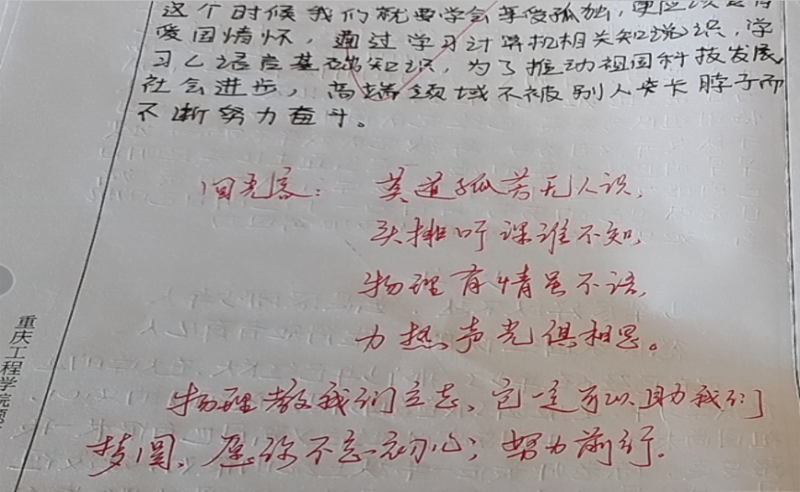 这个时候我们就要学会享受孤独,更应该具有
爱国情怀,通过学习计算机相关知识,学
习C语言基础知识,为了推动祖国科技发展,
社会进步,高端领域不被别人卡脖子而
不断努力奋斗。
回克家:莫道孤芳无人识,
头排听课谁不知,
物理有情虽不语,
力热声光俱相思。
物理教我们立志,它一定可以助我们
梦圆,愿你不忘初心;努力前行。
重庆工程学院